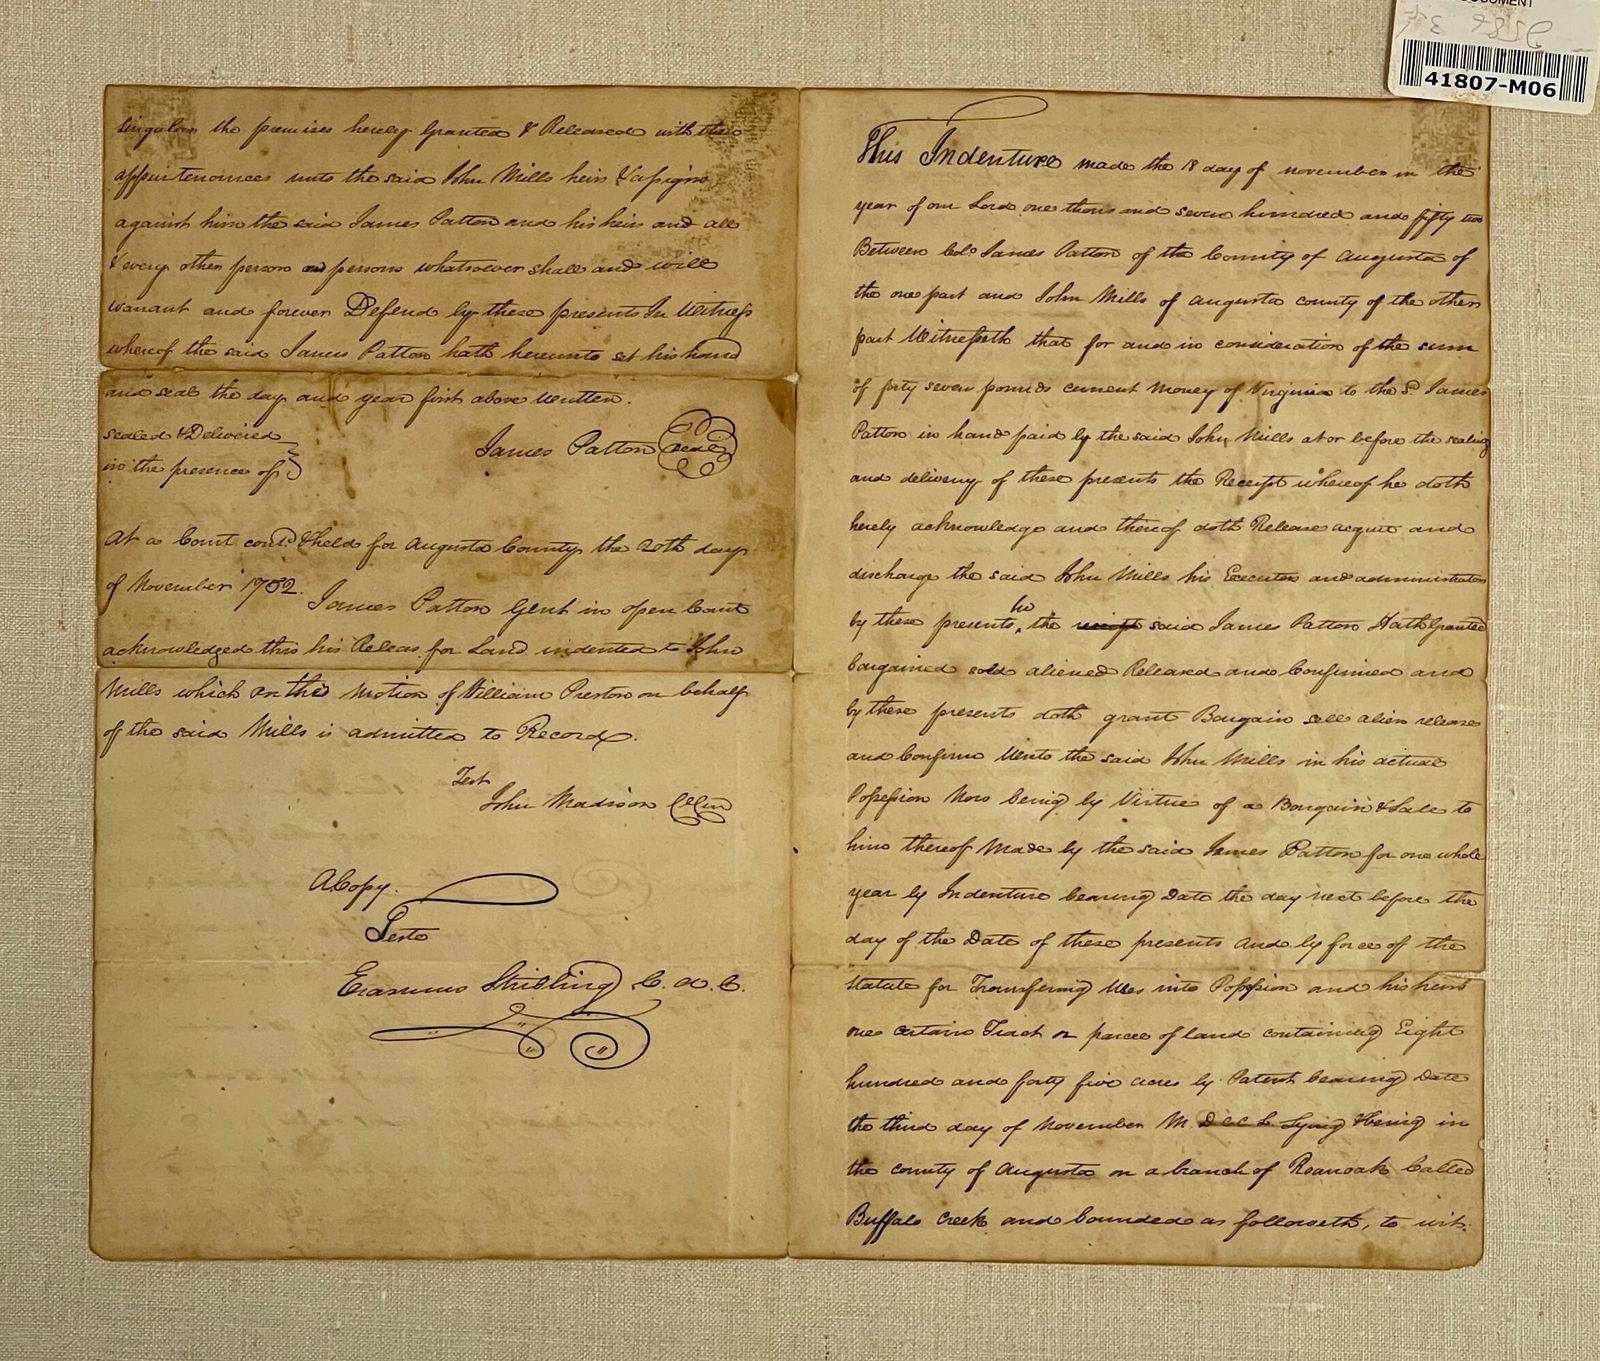 This Indenture made the 18 day of november in the
year of our Lord one thousand seven hundred and fifty two
Between Colo James Patton of the County of Augusta of
the one part and John Mills of augusta county of the other
part Witnesseth that for and in consideration of the sum
of forty seven pounds current Money of Virginia to the Sd James
Patton in hand paid by the said John Mills at or before the sealing
and delivery of these presents the Receipt whereof he doth
hereby acknowledge and thereof doth Release acquit and
discharge the said John Mills his Executors and administrators
by these presents, he the said James Patton Hath Granted
bargained sold aliened Released and Confirmed and
by these presents doth grant Bargain sell alien release
and Confirm Unto the said John Mills in his actual
Possession Now being by Virtue of a Bargain & Sale to
him thereof Made by the said James Patton for one whole
year by Indenture bearing Date the day next before the
day of the Date of these presents and by force of the
Statute for Transfering Uses into Possession and his heirs
one certain Tract or parcel of land containing Eight
hundred and forty five acres by Patent bearing Date
the third day of November M. DCCL. Lying & being in
the county of Augusta on a branch of Roanoak Called
Buffalo Creek and bounded as followeth, to wit.
Singular the premises hereby Granted & Released with the
appurtenances unto the said John Mills heirs & assigns
against him the said James Patton and his heirs and all
& every other person or persons whatsoever shall and will
warrant and forever Defend by these presents In Witness
whereof the said James Patton hath hereunto set his hand
and seal the day and year first above Written.
sealed & Delivered
in the presence of
James Patton (seal)
At a Court contd. & held for Augusta County the 20th day
of November 1752.
James Patton Gent in open Court
acknowledged this his Releas for Land indented to John
Mills which on the Motion of William Preston on behalf
of the said Mills is admitted to Record.
Test
John Madison
A Copy.
Teste
Erasmus Stribling C. A. C.
DOCUMENT
41807-M06